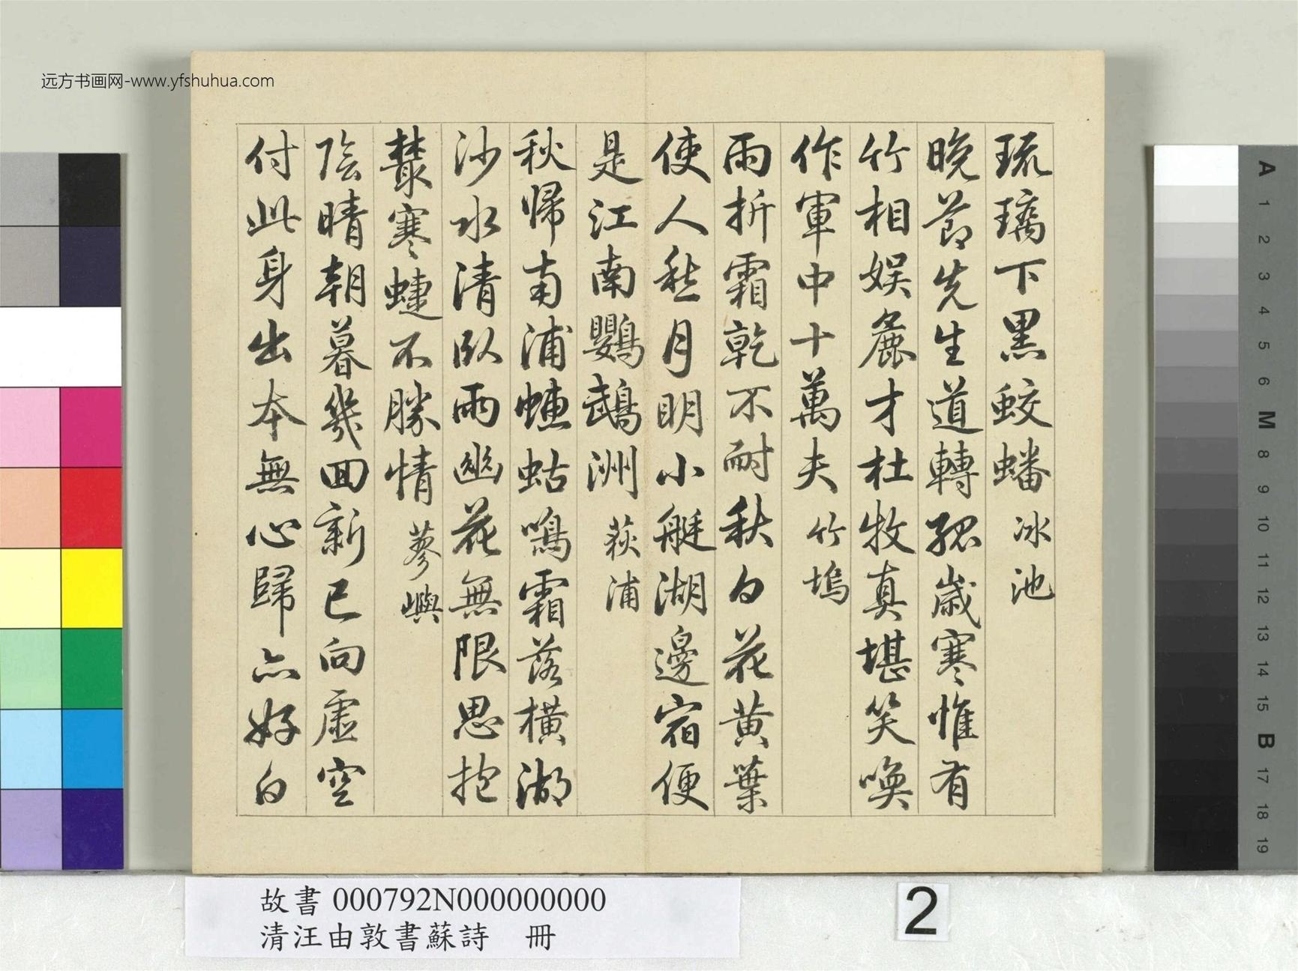 远方书画网-www.yfshuhua.com
琉璃下黑蛟蟠 冰池
晚節先生道轉孤歲寒惟有
竹相娱麁才杜牧真堪笑喚
作軍中十萬夫 竹塢
雨折霜乾不耐秋白花黄葉
使人愁月明小艇湖邊宿便
是江南鸚鵡洲 荻浦
秋歸南浦蟪蛄鳴霜落橫湖
沙水清臥雨幽花無限思抱
叢寒蜨不勝情 蓼嶼
陰晴朝暮幾回新已向虛空
付此身出本無心歸亦好白
故書 000792N000000000
清汪由敦書蘇詩 冊
2
A
1
2
3
4
5
6
M
8
9
10
11
12
13
14
15
B
17
18
19